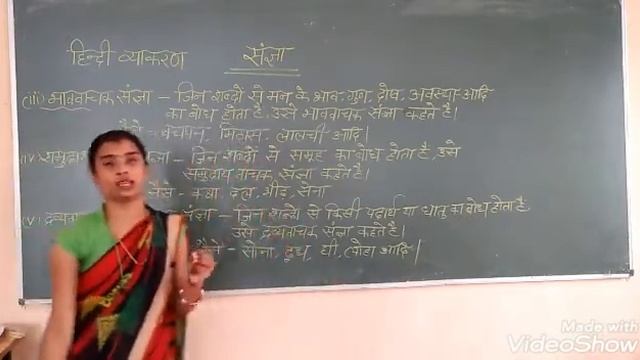 हिन्दी व्याकरण संज्ञा
(iii) भाववाचक संज्ञा - जिन शब्दों से मन के भाव, गुण, दोष, अवस्था आदि
का बोध होता है, उसे भाववाचक संज्ञा कहते है।
जैसे - बचपन, मिठास, लालची आदि।
(iv) - जिन शब्दों से समूह का बोध होता है, उसे
समुदाय वाचक संज्ञा कहते है।
जैसे - कक्षा, दल, भीड़, सेना
(v) संज्ञा - जिन शब्दों से किसी पदार्थ या धातु का बोध होता है,
उसे द्रव्यवाचक संज्ञा कहते है।
- सोना, दूध, घी, लोहा आदि।
Made with
VideoShow